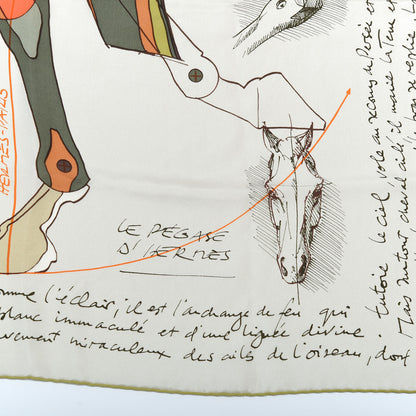 HERMES-PARIS
LE PÉGASE
D'HERMES
comme l'éclair, il est l'archange de feu qui
blanc immaculé et d'une lignée divine.
vement miraculeux des ails de l'oiseau, doux
tutoie le ciel, vole au secours de Persée et
Mais surtout, cheval ailé, il marie la Terre et